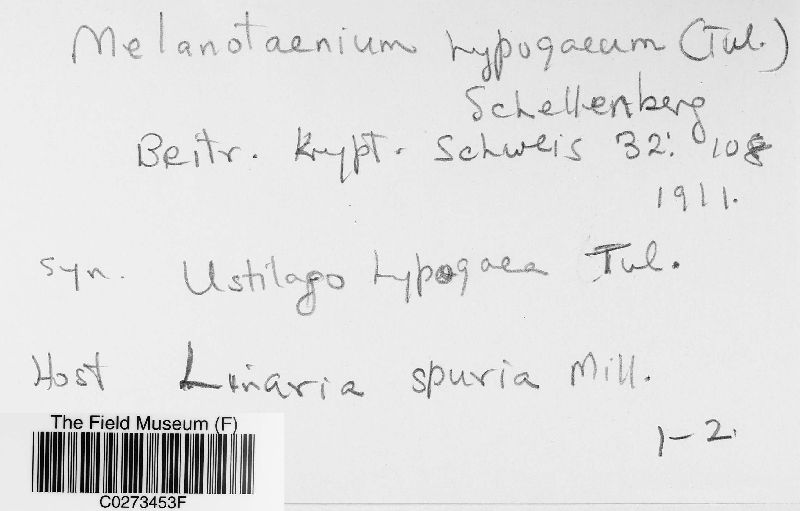 Melanotaenium hypogaeum (Tul.)
Schellenberg
Beitr. Krypt. Schweis 32: 108
1911.
Syn. Ustilago hypogaea Tul.
Host Linaria spuria Mill.
1-2.
The Field Museum (F)
C0273453F